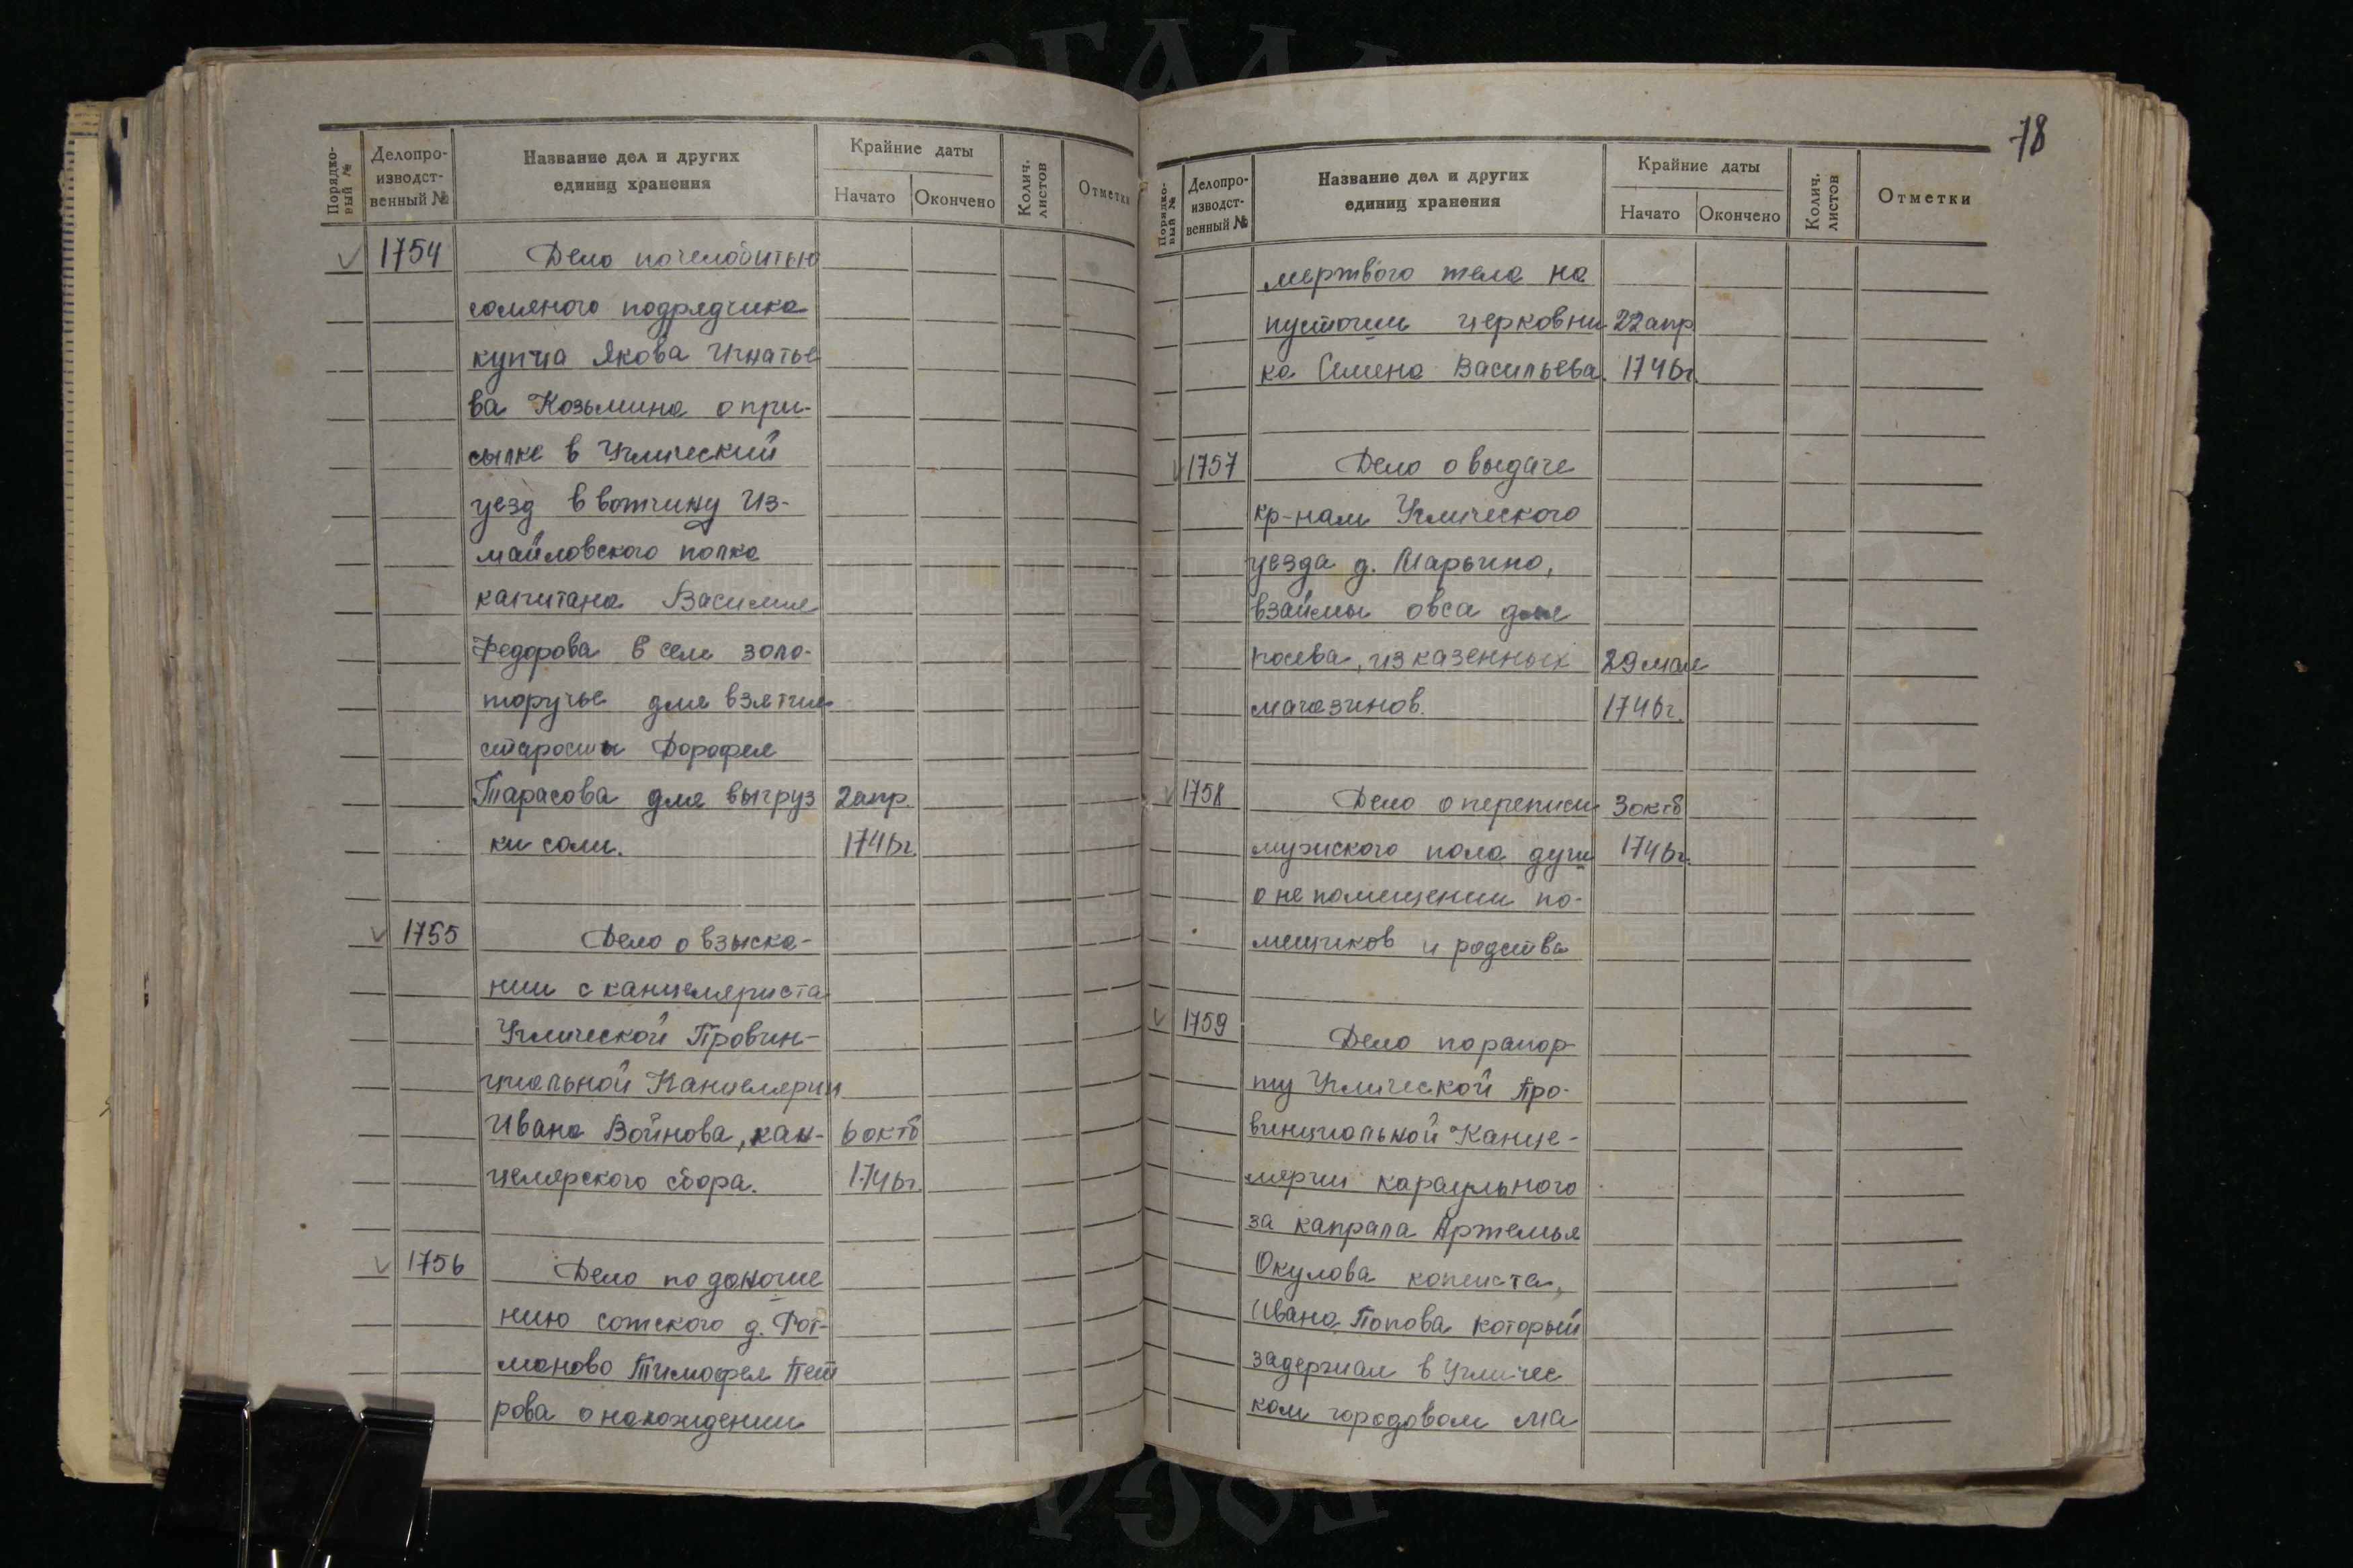 Порядко-
вый №
Делопро-
изводст-
венный №
Название дел и других
единиц хранения
Крайние даты
Начато
Окончено
Колич.
листов
Отметки
1754
Дело по челобитью
соляного подрядчика
купца Якова Игнатье
ва Козьмина о при-
сылке в Угличский
уезд в вотчину Из-
майловского полка
капитана Василия
Федорова в селе золо-
торучье для взятия
старосты Дорофея
Тарасова для выгруз
2 апр.
ки соли.
1746г.
1755
Дело о взыска-
нии с канцеляриста
Угличской Провин-
циальной Канцелярии
Ивана Войнова, кан-
6 октб
целярского сбора.
1746г.
1756
Дело по доноше
нию сотского д. Рот-
маново Тимофея Пет
рова о нахождении
78
Порядко-
вый №
Делопро-
изводст-
венный №
Название дел и других
единиц хранения
Крайние даты
Начато
Окончено
Колич.
листов
Отметки
мертвого тела на
пустоши церковни
22 апр
ка Семена Васильева.
1746г.
1757
Дело о выдаче
кр-нам Угличского
уезда д. Марьино,
взаймы овса для
посева, из казенных
29 мая
магазинов.
1746г.
1758
Дело о переписи
3 октб
мужского пола душ
1746г.
о не помещении по-
мещиков и родства
1759
Дело по рапор-
ту Угличской Про-
винциальной Канце-
лярии караульного
за капрала Артемья
Окулова копеиста,
Ивана Попова который
задержал в Угличес
ком городовом ма